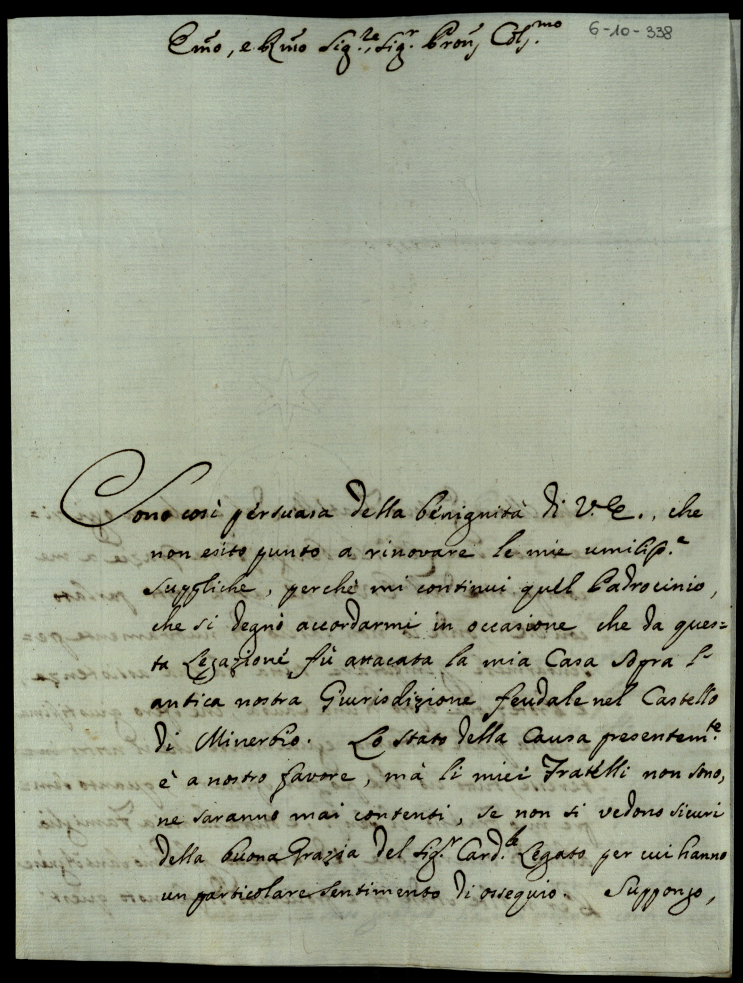 Emo, e Rmo Sig.re, Sig.r Pron Col.mo
6-10-338
Sono così persuasa della benignità di V. E., che
non esito punto a rinovare le mie umiliss.e
suppliche, perchè mi continui quel Padrocinio,
che si degnò accordarmi in occasione che da ques=
ta Legazione fù attacata la mia Casa sopra l'
antica nostra Giurisdizione feudale nel Castello
di Minerbio. Lo stato della Causa presentem.te
è a nostro favore, mà li miei Fratelli non sono,
ne saranno mai contenti, se non si vedono sicuri
della buona Grazia del Sig.r Card.le Legato per cui hanno
un particolare sentimento di ossequio. Suppongo,